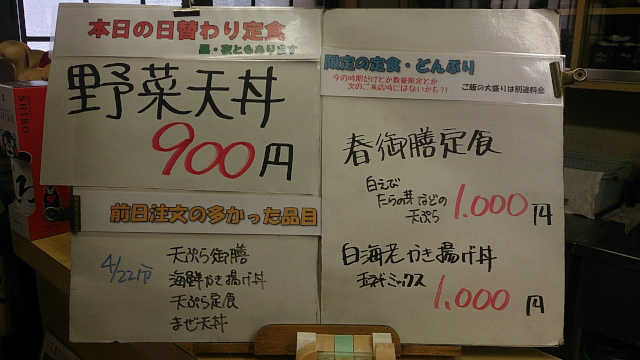 本日の日替わり定食
昼・夜ともあります
野菜天丼
900円
前日注文の多かった品目
天ぷら御膳
海鮮かき揚げ丼
天ぷら定食
まぜ天丼
限定の定食・どんぶり
今の時期だけとか数量限定とか
次のご来店時にはないかも?!
ご飯の大盛りは別途料金
春御膳定食
白えび
たらの芽などの
天ぷら
1.000円
白海老かき揚げ丼
玉ネギミックス
1.000円